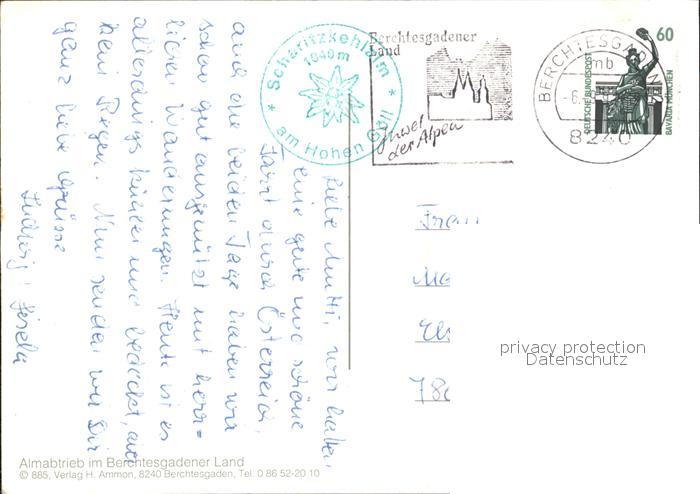 Liebe Mutti, wir hatten
eine gute und schöne
Fahrt durch Österreich,
und die beiden Tage haben wir
schon gut ausgenützt mit herr=
lichen Wanderungen. Heute ist es
allerdings kühler und bedeckt, aber
kein Regen. Nun senden wir Dir
ganz liebe Grüsse
Ludwig + Gisela
Scharitzkehlalm
1040 m
am Hohen Göll
Berchtesgadener
Land
Juwel
der Alpen
BERCHTESGADEN
mb
8240
60
DEUTSCHE BUNDESPOST
BAVARIA MÜNCHEN
Frau
privacy protection
Datenschutz
Almabtrieb im Berchtesgadener Land
© 885, Verlag H. Ammon, 8240 Berchtesgaden, Tel. 0 86 52-20 10